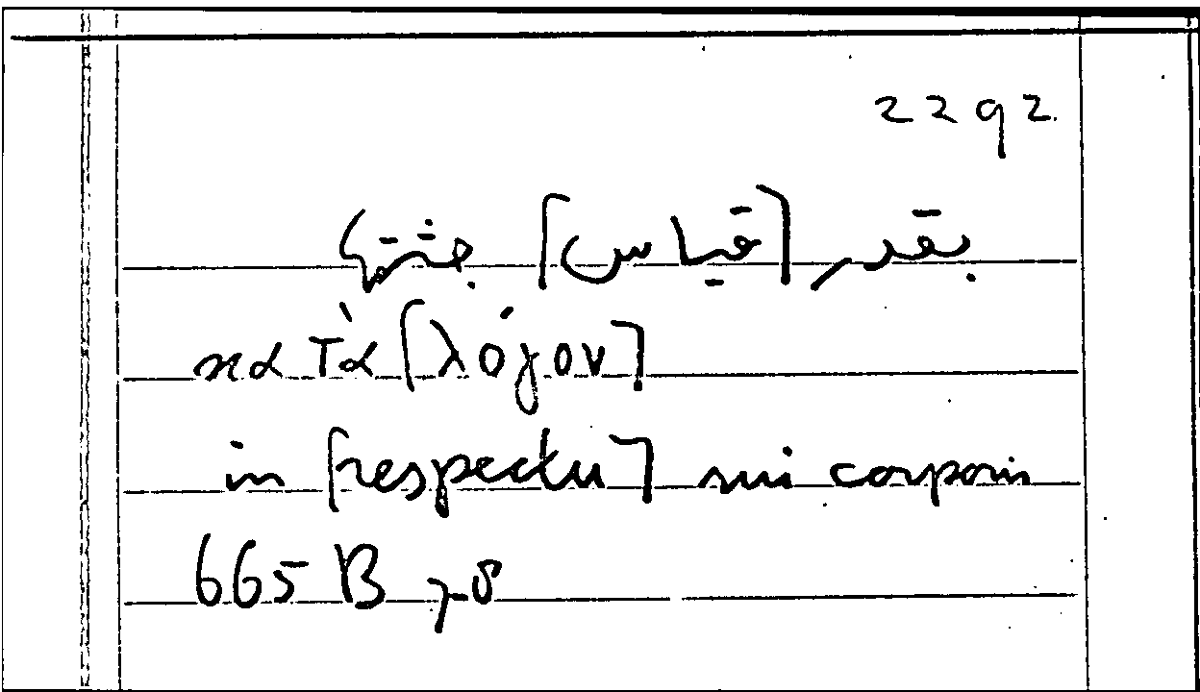 2292
بقدر [قياس] جثتها
κατὰ [λόγον]
in [respectu] sui corporis
665 B 7-8